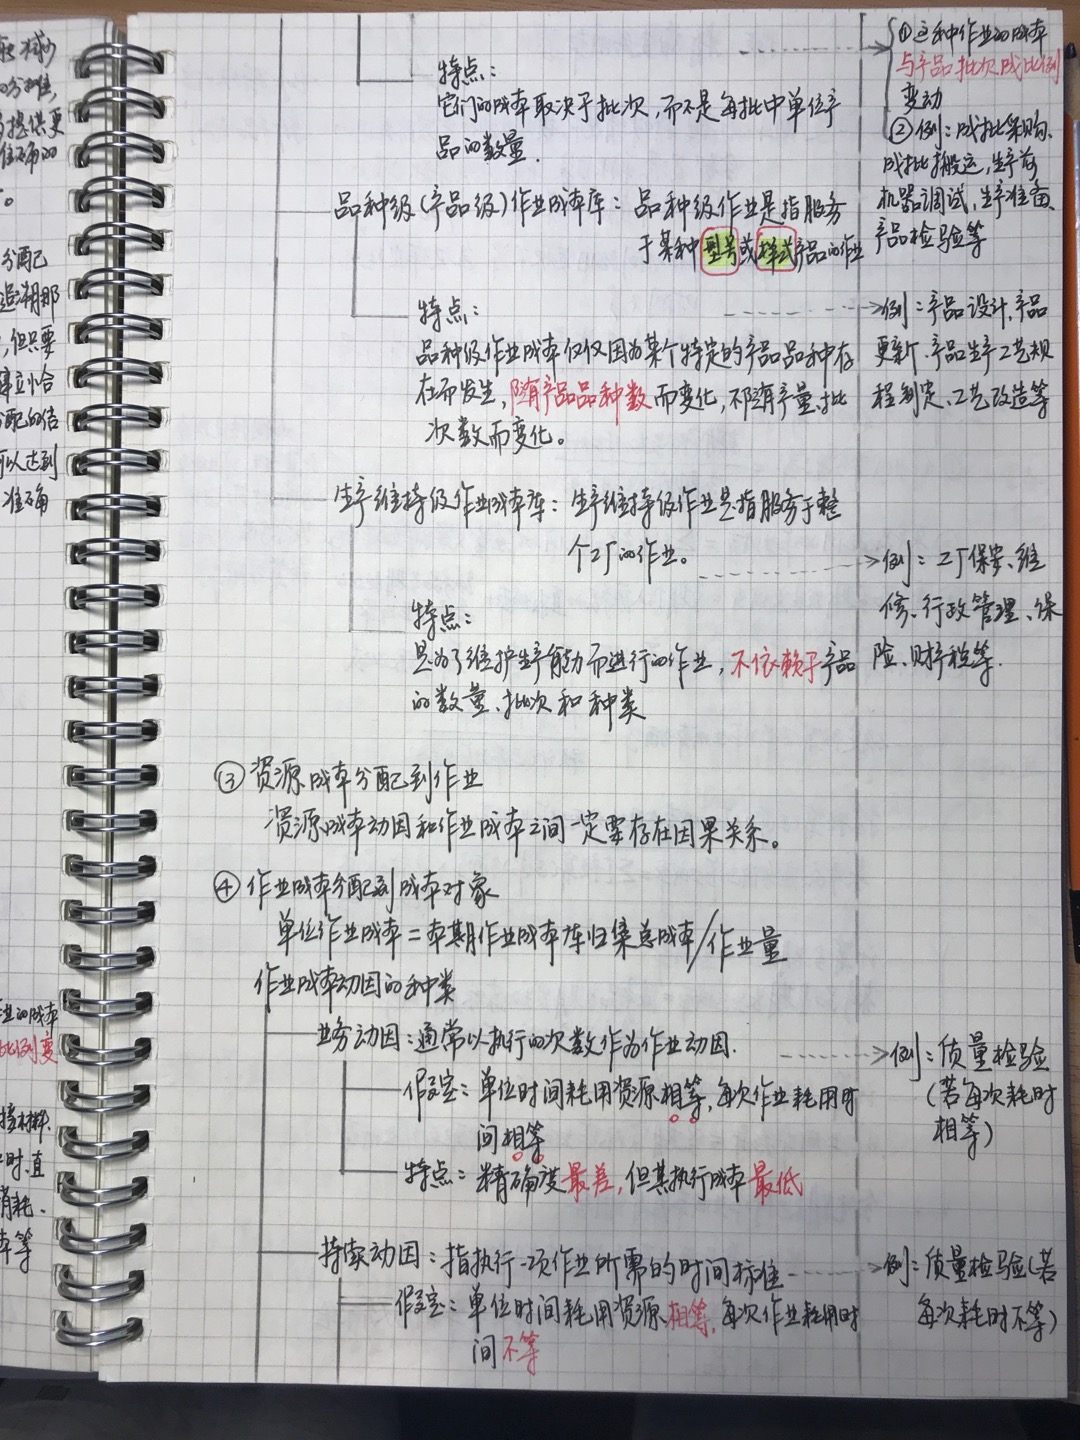 特点：
它们的成本取决于批次，而不是每批中单位产
品的数量.
①这种作业的成本
与产品批次成比例
变动
②例：成批采购、
成批搬运，生产前
机器调试，生产准备、
产品检验等
品种级(产品级)作业成本库：品种级作业是指服务
于某种型号或样式产品的作业
特点：
品种级作业成本仅仅因为某个特定的产品品种存
在而发生，随产品品种数而变化，不随产量、批
次数而变化。
例：产品设计、产品
更新、产品生产工艺规
程制定、工艺改造等
生产维持级作业成本库：生产维持级作业是指服务于整
个工厂的作业。
例：工厂保安、维
修、行政管理、保
险、财产税等.
特点：
是为了维护生产能力而进行的作业，不依赖于产品
的数量、批次和种类
③资源成本分配到作业
资源成本动因和作业成本之间一定要存在因果关系。
④作业成本分配到成本对象
单位作业成本=本期作业成本库归集总成本/作业量
作业成本动因的种类
业务动因：通常以执行的次数作为作业动因.
例：质量检验
(若每次耗时
相等)
假定：单位时间耗用资源相等，每次作业耗用时
间相等
特点：精确度最差，但其执行成本最低
持续动因：指执行一项作业所需的时间标准
例：质量检验(若
每次耗时不等)
假定：单位时间耗用资源相等，每次作业耗用时
间不等
分配
但只要
可以达到
准确
的成本
比例变
时、直
消耗、
本等